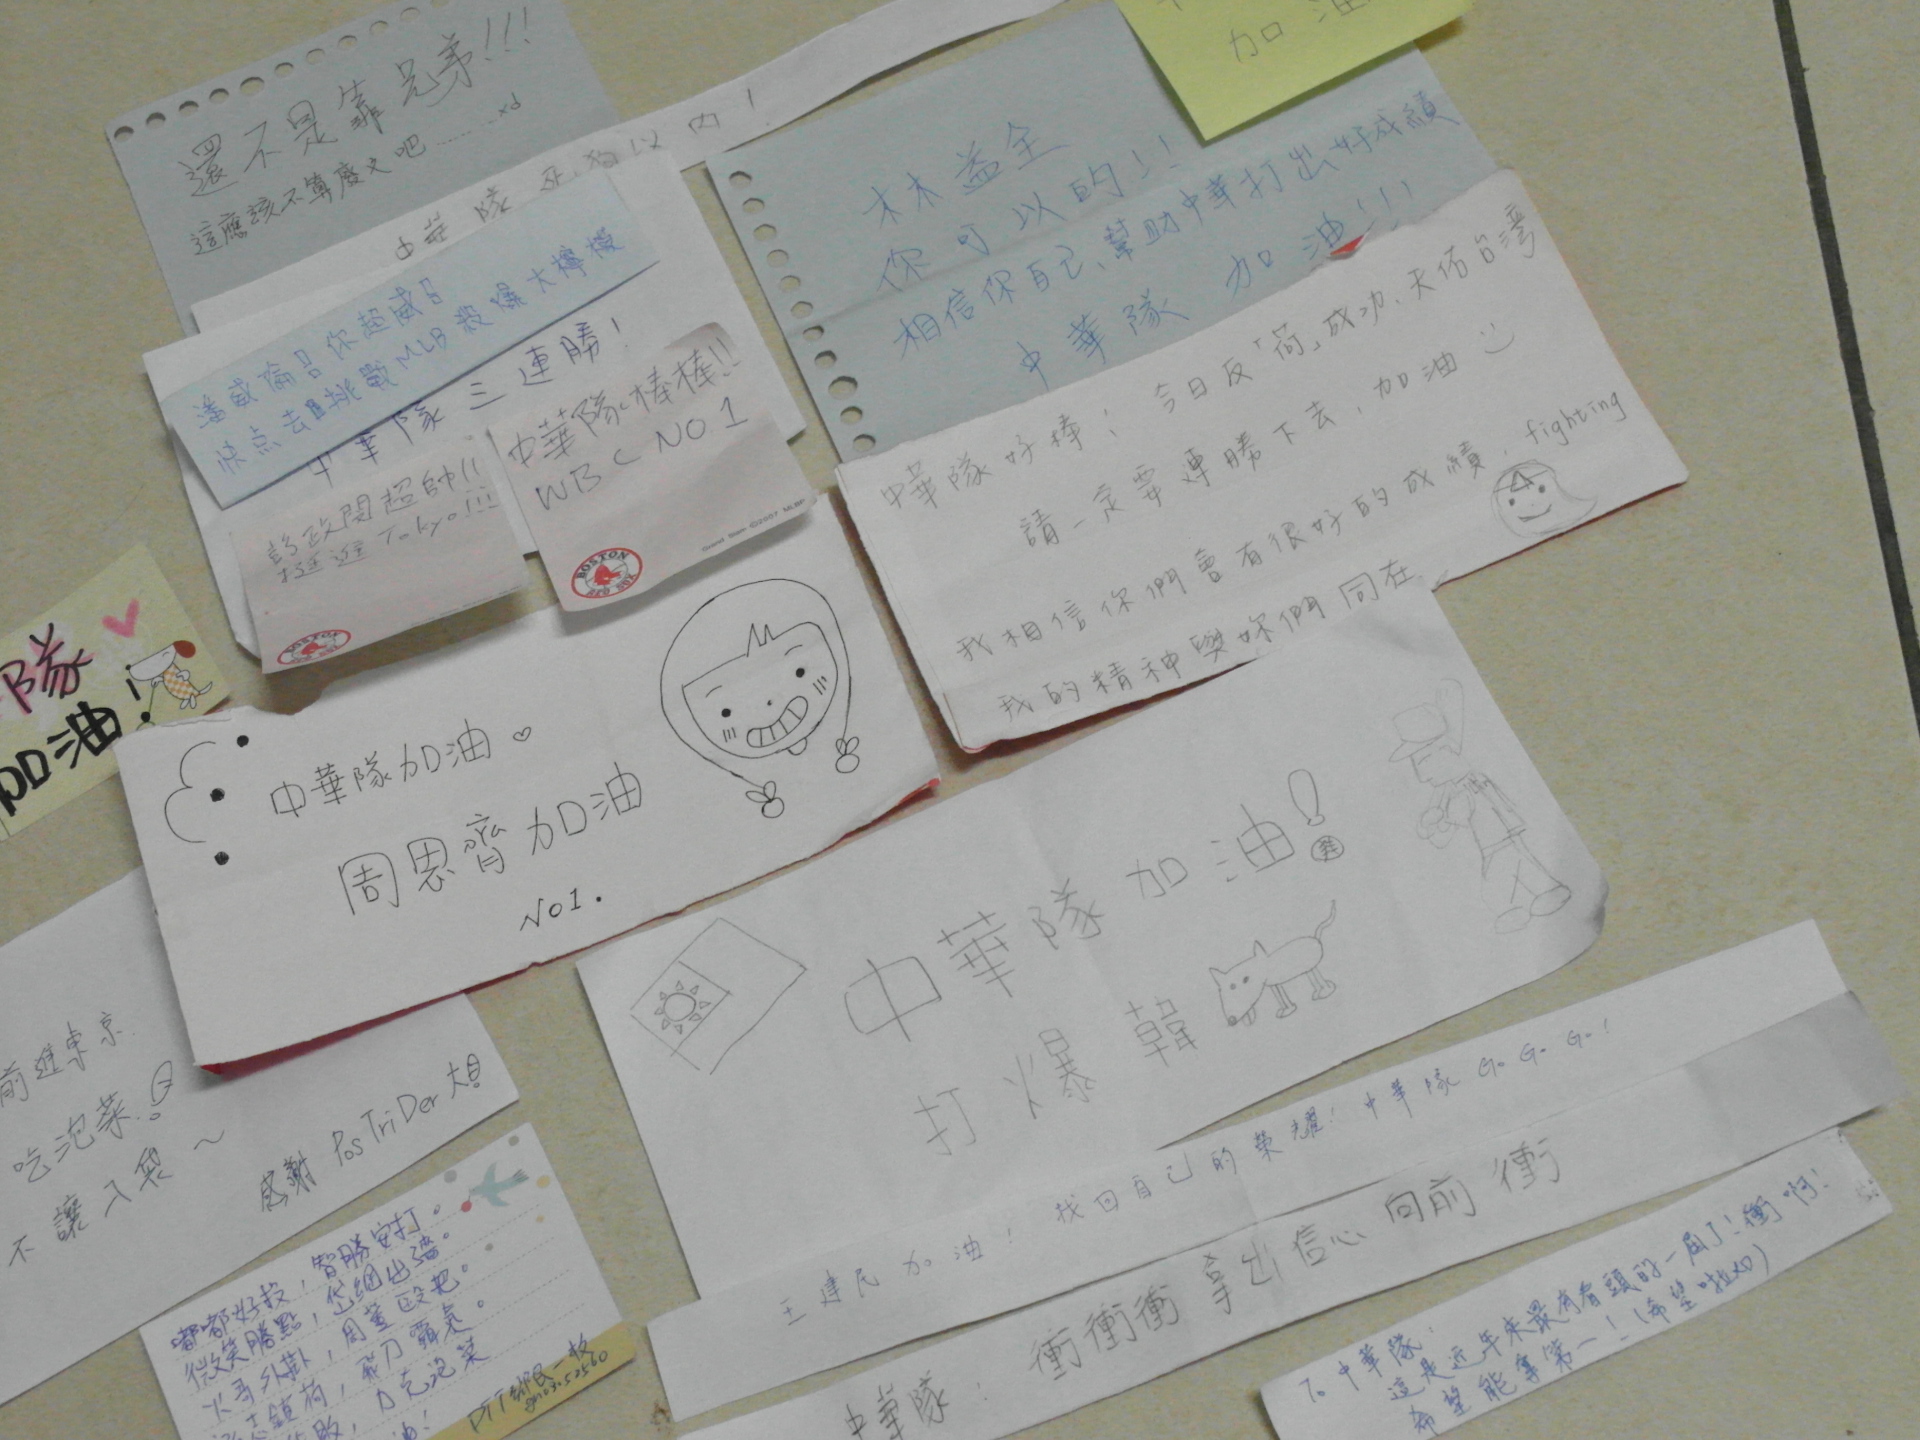 還不是靠兄弟!!!
這應該不算廢文吧………xd
中華隊 以內!
加油
林益全
你可以的!!
相信你自己、幫助中華打出好成績
中華隊 加油!!!
潘威倫 你超威
快点去挑戰MLB 投爆大檸檬
中華隊三連勝!
彭政閔超帥!!
挺進 Tokyo!!!
BOSTON RED SOX
中華隊棒棒!!
WBC NO 1
Grand Slam ©2007 MLBP
BOSTON RED SOX
中華隊好棒! 今日反「荷」成功、天佑台灣
請一定要連勝下去,加油
我相信你們會有很好的成績, fighting
我的精神與妳們同在
隊
加油!
中華隊加油
周思齊加油
NO1.
中華隊加油!
打爆韓
前進東京
吃泡菜!
不讓入袋~
感謝 PosTriDer 大
王建民加油! 找回自己的榮耀! 中華隊 Go Go Go!
中華隊: 衝衝衝 拿出信心 向前衝
To 中華隊:
這是近年來最有看頭的一屆了! 衝啊!
希望能拿第一!(希望啦xd)
嘟嘟好投,智勝安打。
微笑勝點,岱鋼出牆。
火哥外掛,周董毆把。
鎮荷,飛刀霸氣。
敗,力克泡菜
油!
PTT鄉民一枚